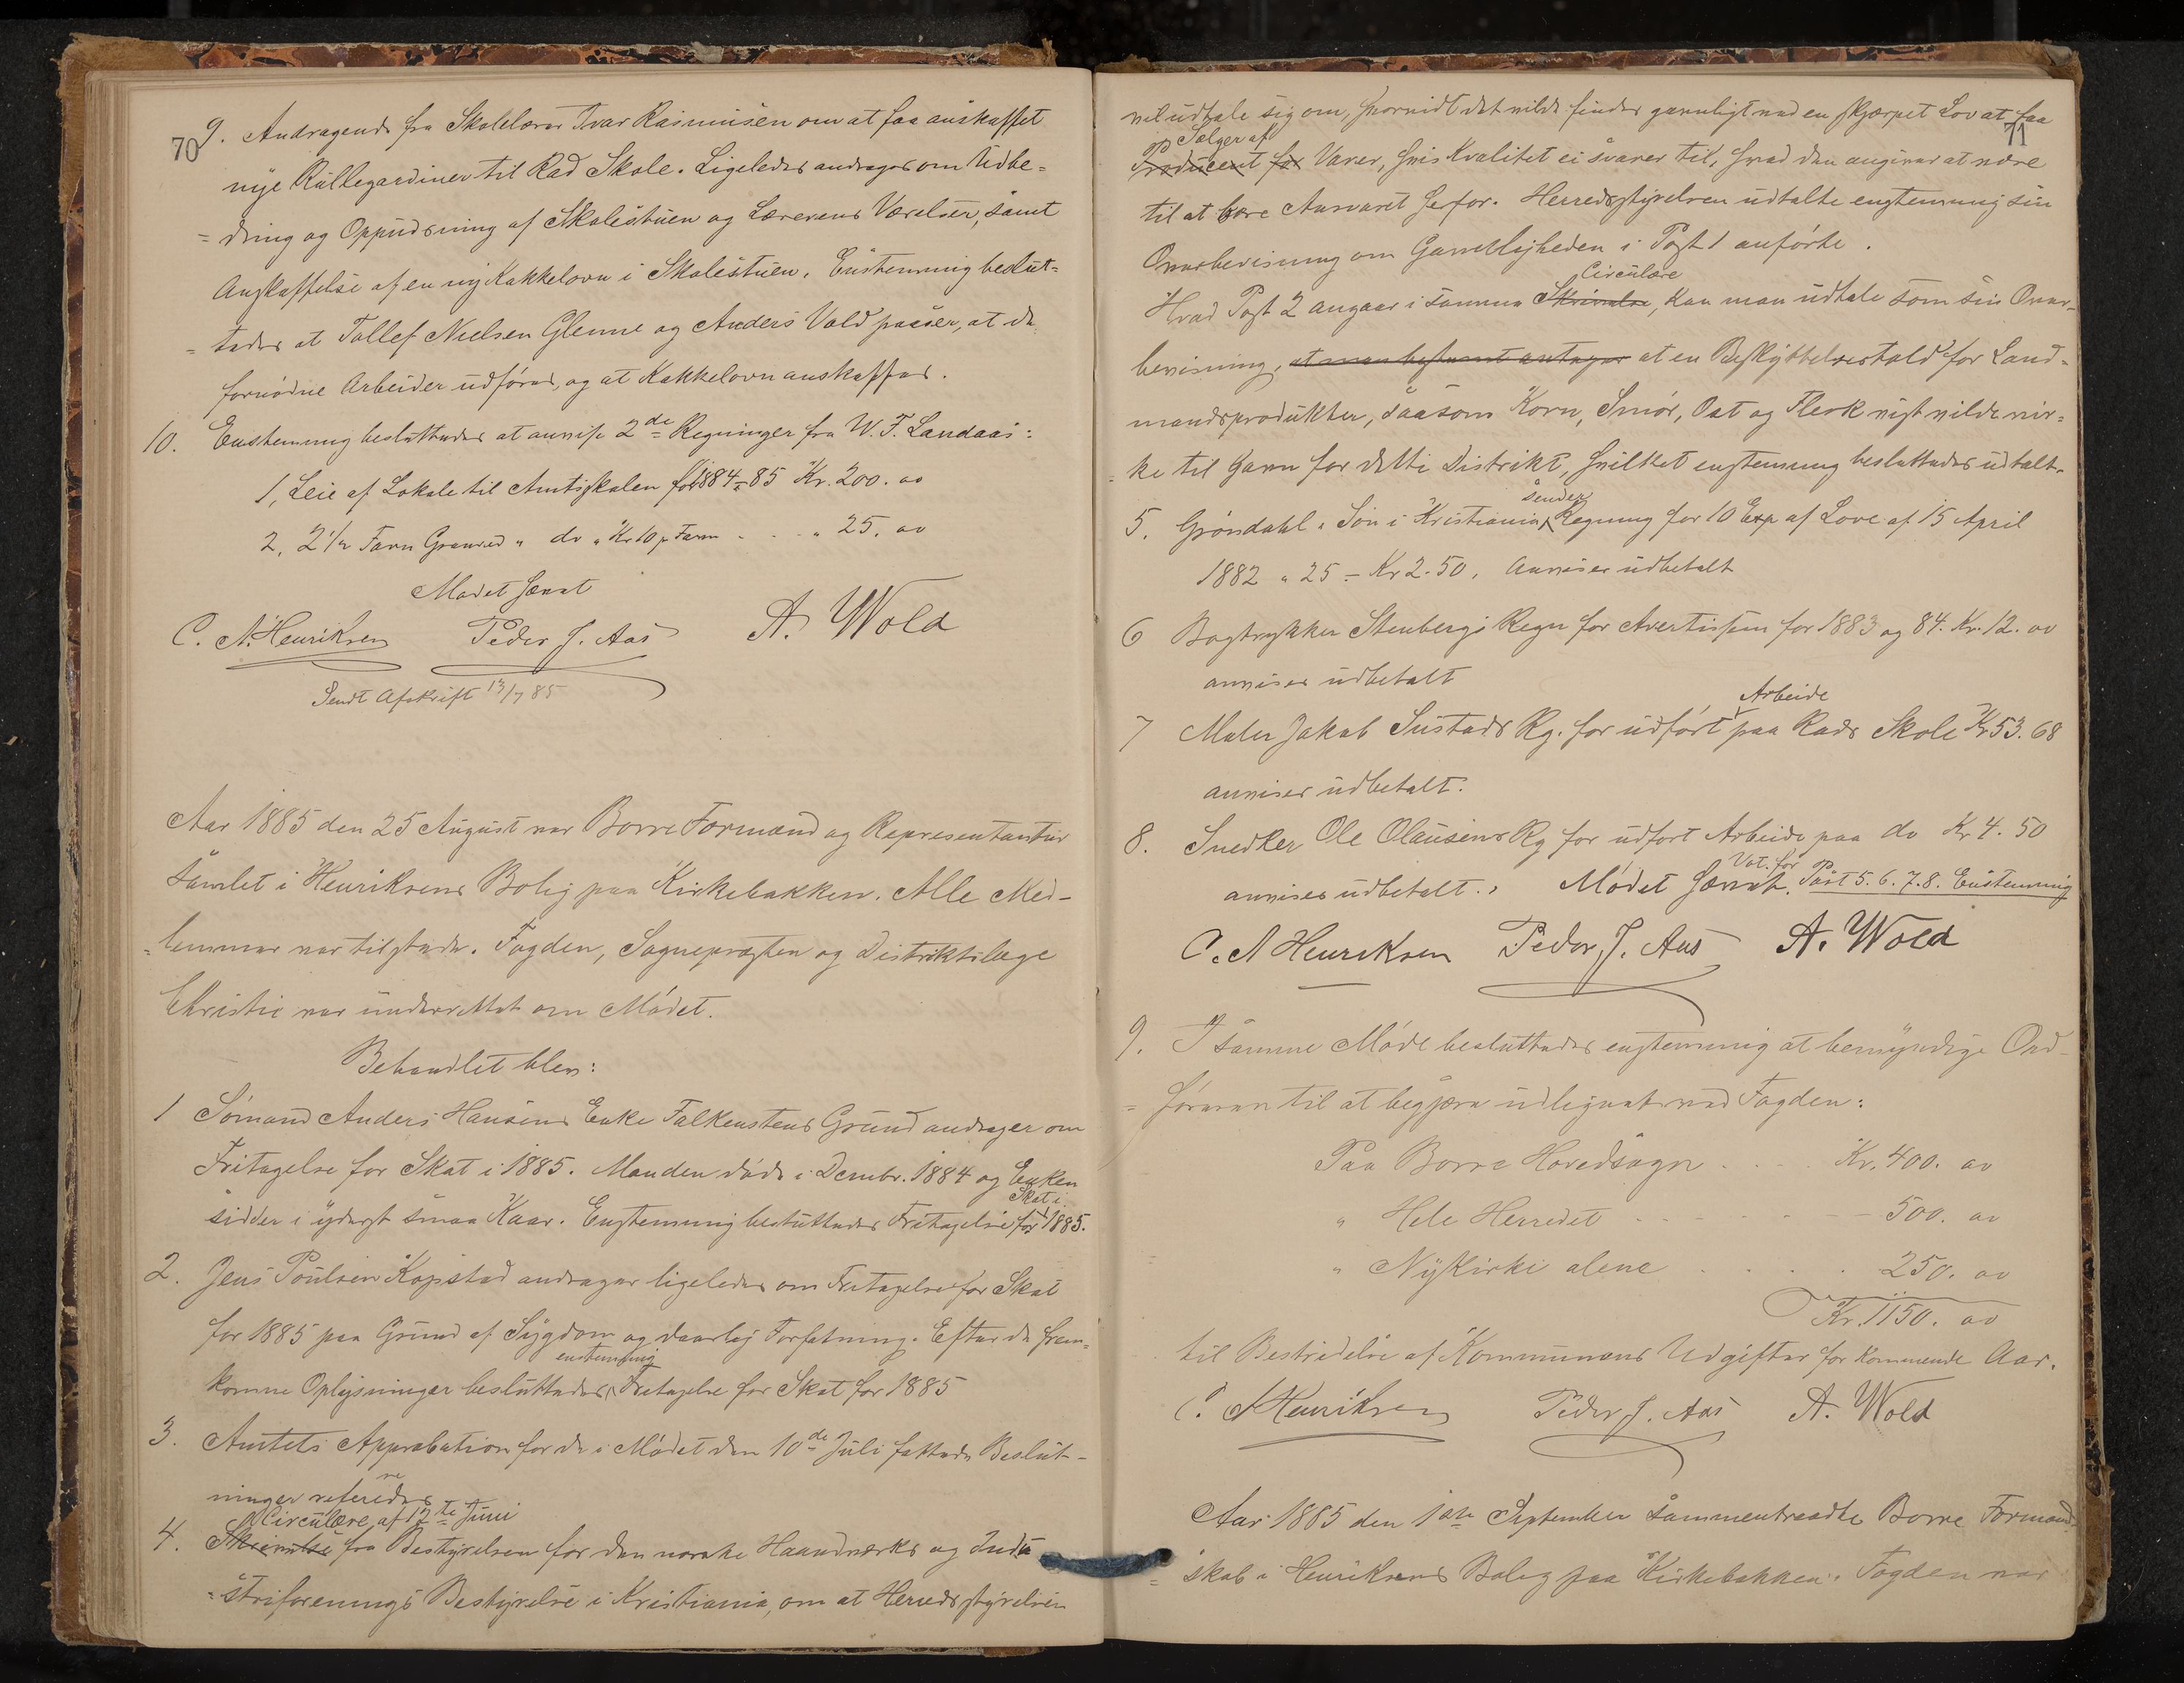 70
9. Andragende fra Skolelærer Ivar Rasmusen om at faa anskaffet
nye Rullegardiner til Rad Skole. Ligeledes andrages om Udbe=
=dring og Oppudsning af Skolestuen og Lærerens Værelser, samt
Anskaffelse af en ny Kakkelovn i Skolestuen. Enstemmig beslut=
=tedes at Tollef Nielsen Glenne og Anders Vold paaser, at de
fornødne Arbeider udføres, og at Kakkelovn anskaffes.
10. Enstemmig besluttedes at anvise 2de Regninger fra W. F. Landaas:
1, Leie af Lokale til Amtsskolen for 1884-85 Kr. 200. oo
2, 2 1/2 Favn Granved " do " Kr 10 pr Favn - . . - " 25. oo
Mødet hævet
C. A. Henriksen Peder J. Aas A. Wold
Sendt Afskrift 13/7 85
Aar 1885 den 25 August var Borre Formænd og Representanter
samlet i Henriksens Bolig paa Kirkebakken. Alle Med-
=lemmer var tilstede. Fogden, Sognepræsten og Distriktslæge
Christie var underrettet om Mødet.
Behandlet blev:
1 Sømand Anders Hansens Enke Falkenstens Grund andrager om
Fritagelse for Skat i 1885. Manden døde i Decmbr. 1884 og Enken
Skat i
sidder i yderst smaa Kaar. Enstemmig besluttedes Fritagelse for 1885.
2. Jens Poulsen Kopstad andrager ligeledes om Fritagelse for Skat
for 1885 paa Grund af Sygdom og daarlig Forfatning. Efter de frem=
enstemmig
komne Oplysninger besluttedes Fritagelse for Skat for 1885
3. Amtets Approbation for de i Mødet den 10de Juli fattede Beslut-
ninger refereredes
Circulære af 12te Juni
4. Skrivelse fra Bestyrelsen for den norske Haandværks og Indu
=striforenings Bestyrelse i Kristiania, om at Herredsstyrelsen
71
vil udtale sig om, hvorvidt det vilde findes gavnligt ved en skjærpet Lov at faa
op Sælger af
Producent for Varer, hvis Kvalitet ei svarer til, hvad den angives at være
til at bære Ansvaret herfor. Herredsstyrelsen udtalte enstemmig sin
Overbevisning om Gavnligheden i Post 1 anførte.
Circulære
Hvad Post 2 angaar i samme Skrivelse, kan man udtale som sin Over-
bevisning, at man bestemt antager at en Beskyttelsestold for Land=
mandsprodukter, saasom Korn, Smør, Ost og Flesk vist vilde vir=
=ke til Gavn for dette Distrikt, hvilket enstemmig besluttedes udtalt.
sender
5. Grøndahl & Søn i Kristiania Regning for 10 Exp af Love af 15 April
1882 " 25 = Kr 2.50. Anvises udbetalt
6 Bogtrykker Stenbergs Regn for Avertissem for 1883 og 84. Kr. 12. oo
anvises udbetalt
Arbeide
7 Maler Jakob Sustads Rg. for udført paa Rads Skole Kr 53. 68
anvises udbetalt.
8. Snedker Ole Olausens Rg for udført Arbeide paa do Kr 4. 50
Vot. for
anvises udbetalt. Mødet hævet. Post 5. 6. 7. 8. Enstemmig
C. A Henriksen Peder J. Aas A. Wold
9. I samme Møde besluttedes enstemmig at bemyndige Ord-
=føreren til at begjære udlignet ved Fogden:
Paa Borre Hovedsogn . . . . Kr. 400. oo
" Hele Herredet - - - - - - 500. oo
" Nykirke alene . . . . . 250. oo
Kr. 1150. oo
til Bestridelse af Kommunens Udgifter for kommende Aar.
C. A Henriksen Peder J. Aas A. Wold
Aar 1885 den 1ste September sammentraadte Borre Formand-
=skab i Henriksens Bolig paa Kirkebakken. Fogden var